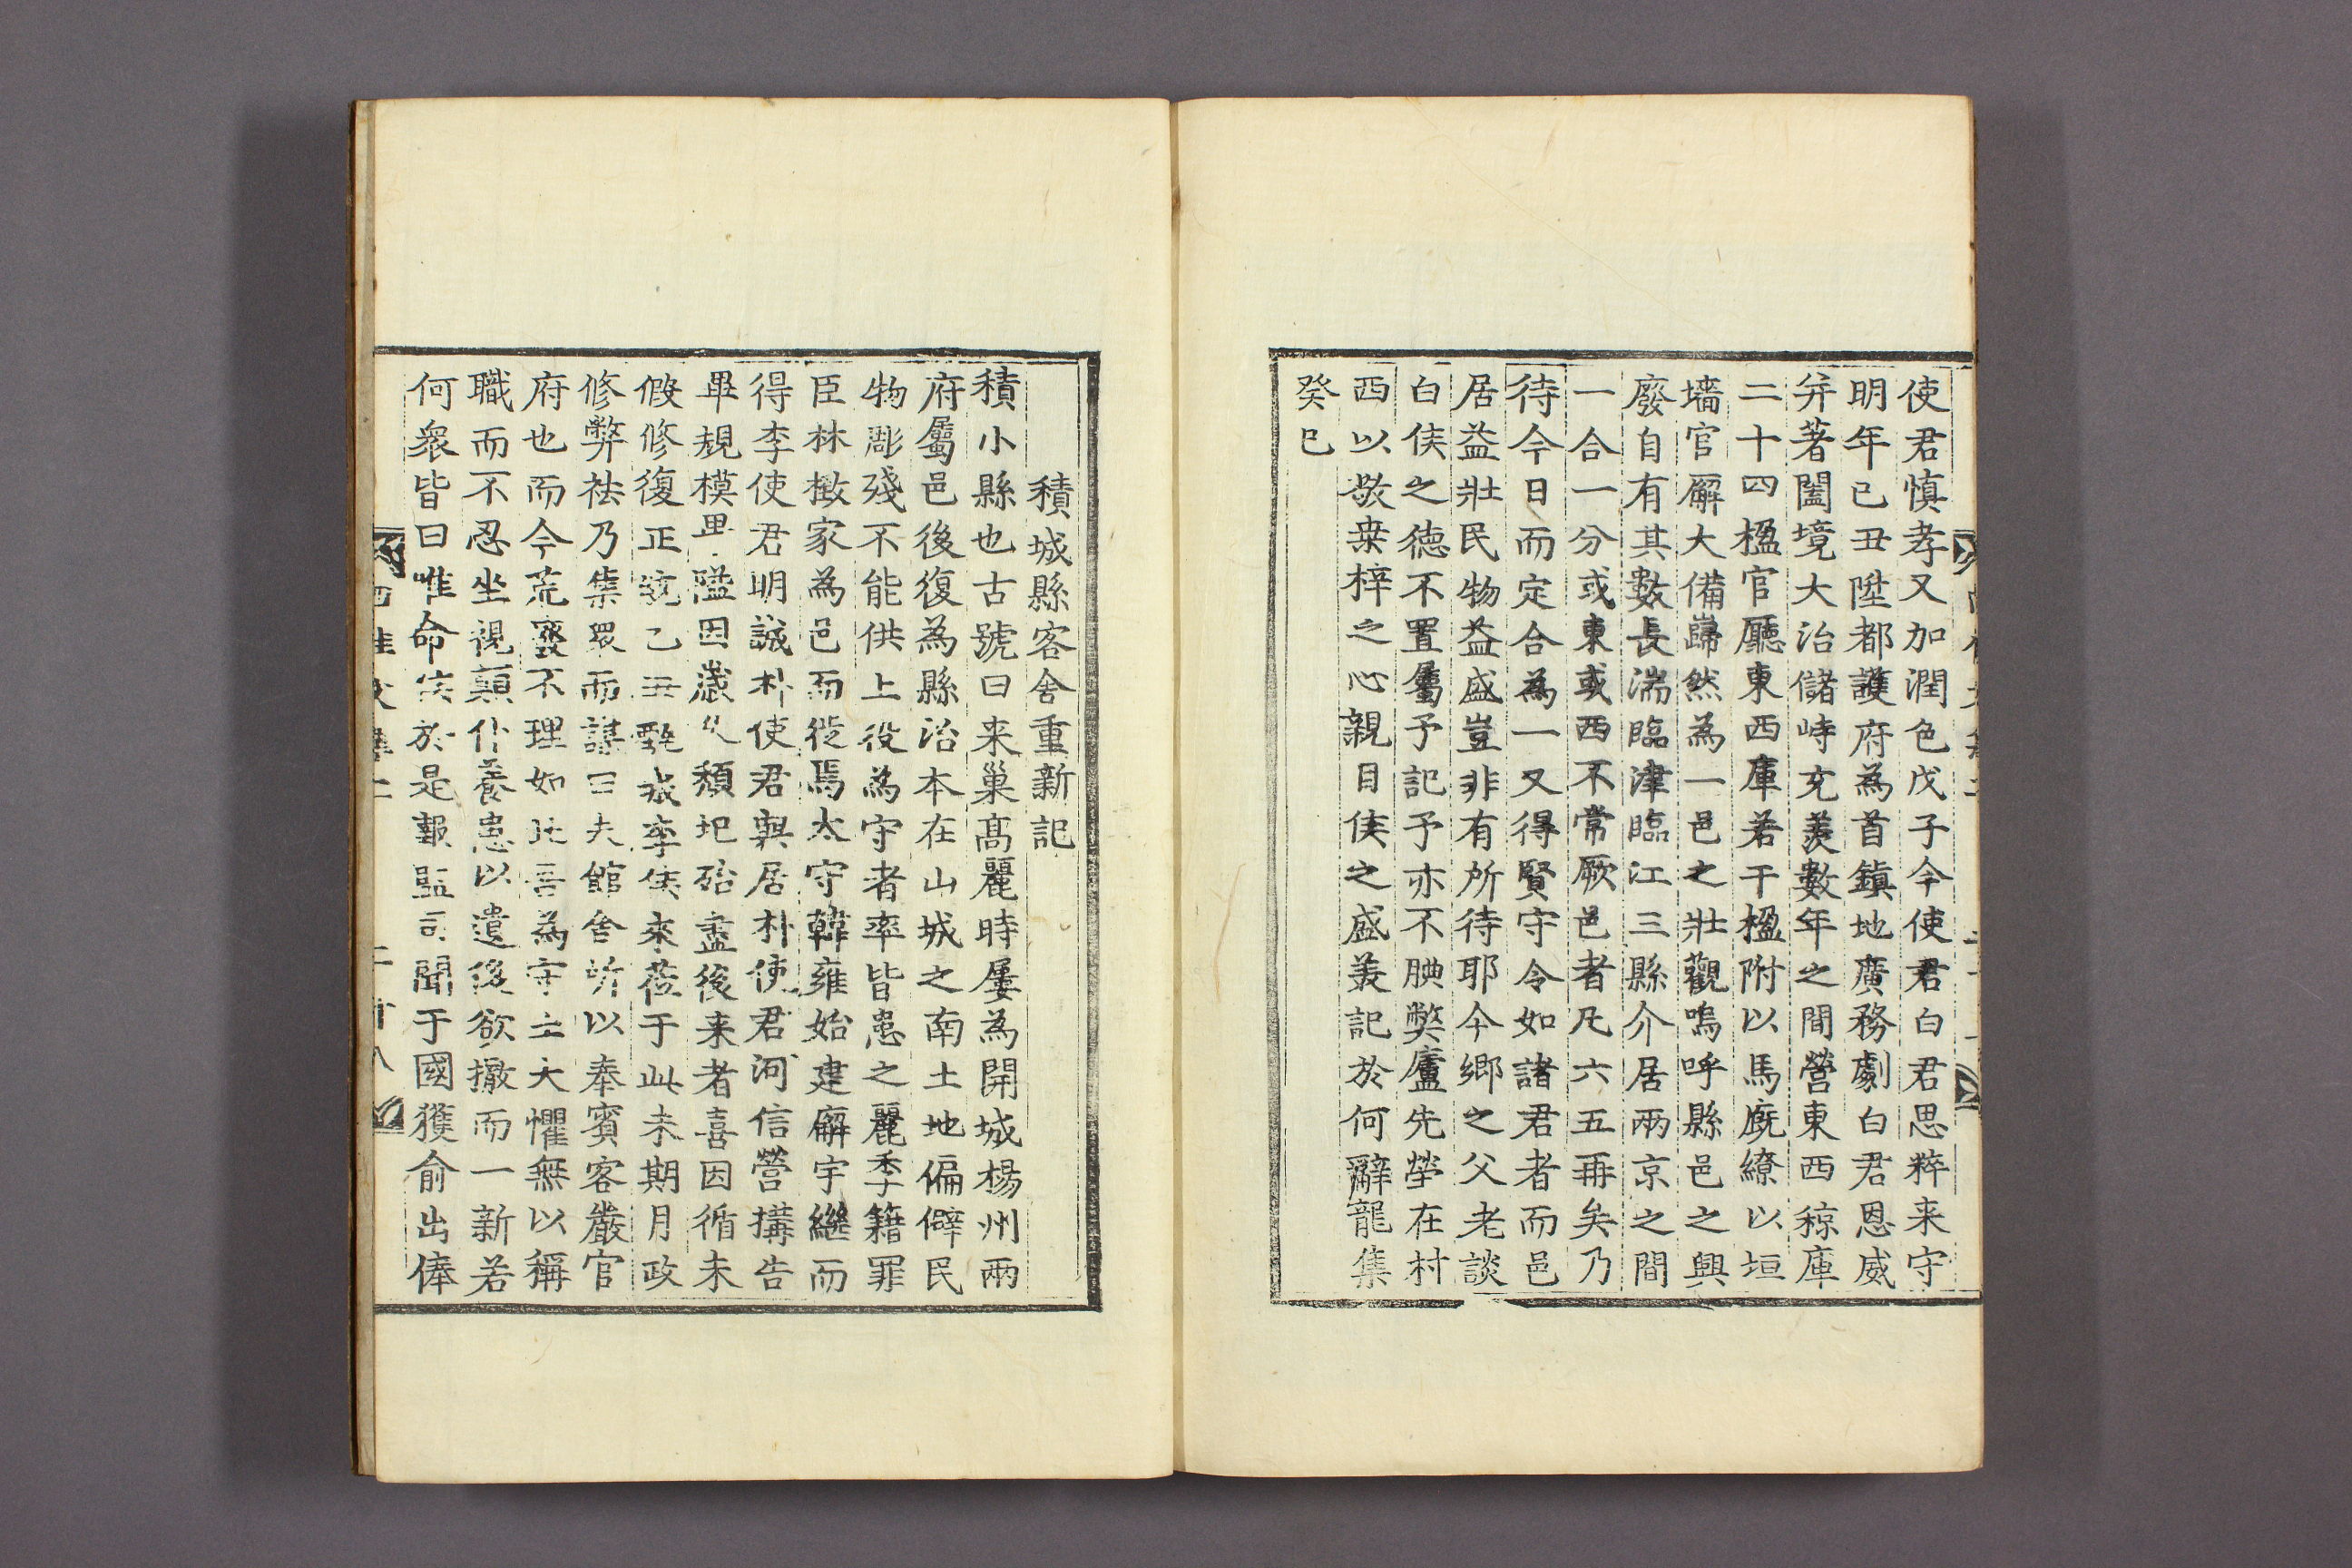 使君慎孝又加潤色戊子今使君白君思粹来守
明年己丑陞都護府為首鎮地廣務劇白君恩威
并著闔境大治儲峙充羨數年之間營東西稤庫
二十四楹官廳東西庫若干楹附以馬廐繚以垣
墻官廨大備巋然為一邑之壯觀嗚呼縣邑之興
廢自有其數長湍臨津臨江三縣介居兩京之間
一合一分或東或西不常厥邑者凡六五再矣乃
待今日而定合為一又得賢守令如諸君者而邑
居益壯民物益盛豈非有所待耶今鄉之父老談
白侯之德不置屬予記予亦不腆弊廬先塋在村
西以敬桒梓之心親目侯之盛羙記於何辭龍集
癸巳
積城縣客舍重新記
積小縣也古號曰来巢髙麗時屢為開城楊州兩
府屬邑後復為縣治本在山城之南土地偏僻民
物彫殘不能供上役為守者率皆患之麗季籍罪
臣林樕家為邑而徙焉太守韓雍始建廨宇繼而
得李使君明誠朴使君興居朴使君河信營搆告
畢規模畢隘因歲久頹圯殆盡後来者喜因循未
假修復正統乙丑甄城李侯來莅于此未期月政
修弊袪乃集眾而謀曰夫館舍所以奉賓客嚴官
府也而今荒廢不理如此吾為守土大懼無以稱
職而不忍坐視顛仆養患以遺後欲撤而一新若
何衆皆曰唯命侯於是報監司聞于國獲俞出俸
四佳文集二 二十八